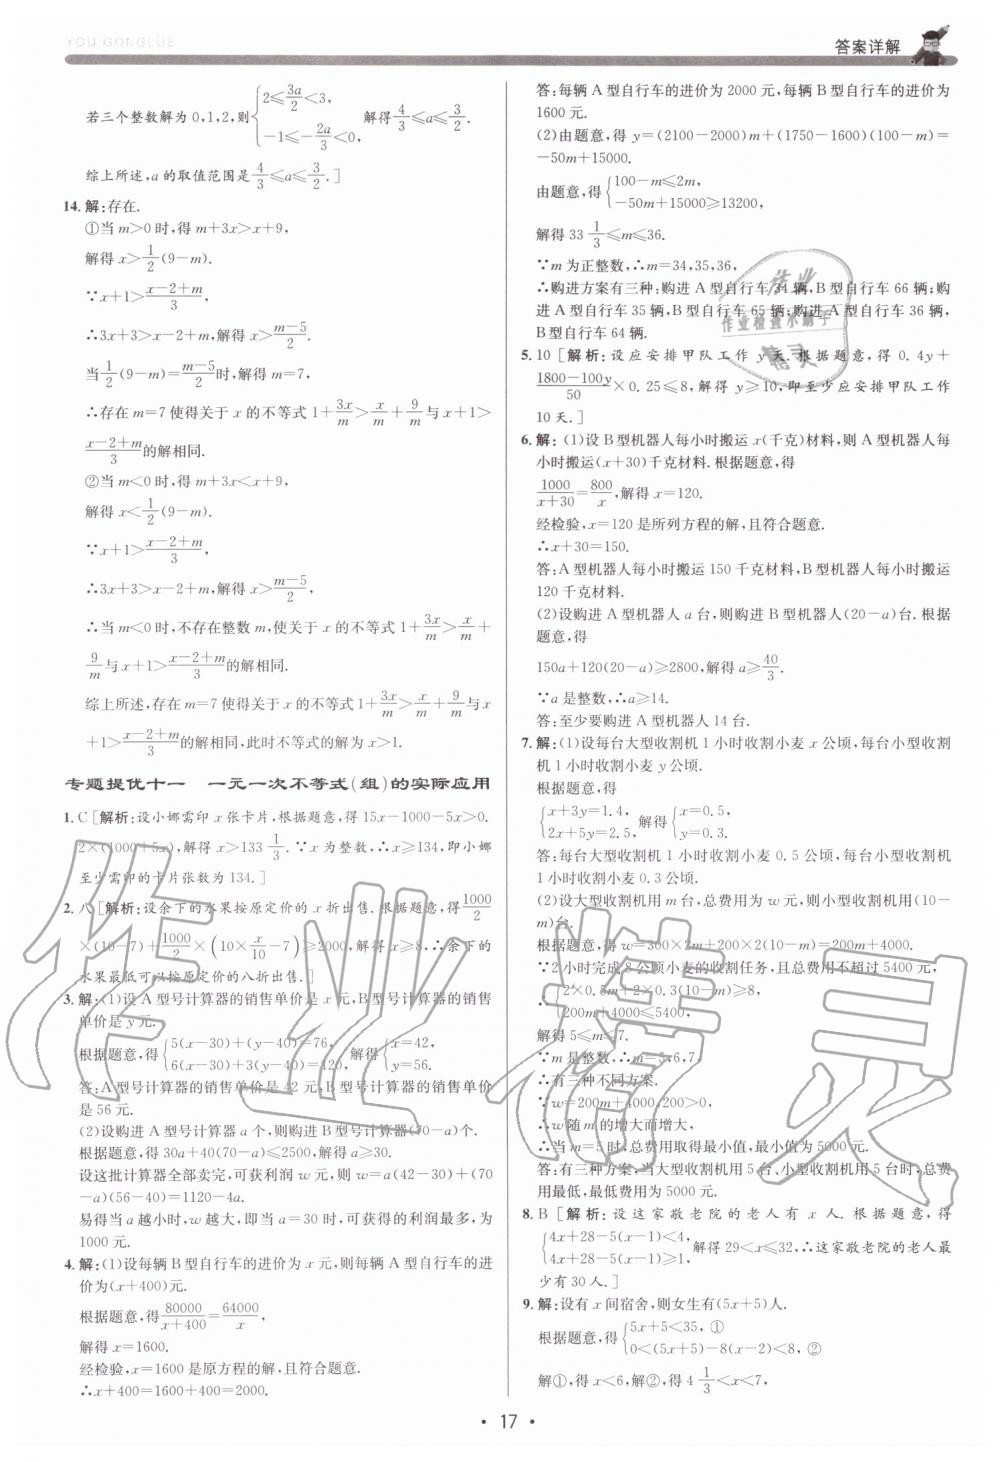 YOU GONGLÜE
答案详解
若三个整数解为0,1,2,则{2≤3a/2<3, -1≤-2a/3<0, 解得4/3≤a≤3/2.
综上所述,a的取值范围是4/3≤a≤3/2.]
14.解:存在.
①当m>0时,得m+3x>x+9,
解得x>1/2(9-m).
∵x+1>(x-2+m)/3,
∴3x+3>x-2+m,解得x>(m-5)/2.
当1/2(9-m)=(m-5)/2时,解得m=7,
∴存在m=7使得关于x的不等式1+3x/m>x/m+9/m与x+1>
(x-2+m)/3的解相同.
②当m<0时,得m+3x<x+9,
解得x<1/2(9-m).
∵x+1>(x-2+m)/3,
∴3x+3>x-2+m,解得x>(m-5)/2,
∴当m<0时,不存在整数m,使关于x的不等式1+3x/m>x/m+
9/m与x+1>(x-2+m)/3的解相同.
综上所述,存在m=7使得关于x的不等式1+3x/m>x/m+9/m与x
+1>(x-2+m)/3的解相同,此时不等式的解为x>1.
专题提优十一 一元一次不等式(组)的实际应用
1.C[解析:设小娜需印x张卡片,根据题意,得15x-1000-5x>0.
2×(1000+5x),解得x>133 1/3.∵x为整数,∴x≥134,即小娜
至少需印的卡片张数为134.]
2.八[解析:设余下的水果按原定价的x折出售.根据题意,得1000/2
×(10-7)+1000/2×(10×x/10-7)≥2000,解得x≥8,∴余下的
水果最低可以按原定价的八折出售.]
3.解:(1)设A型号计算器的销售单价是x元,B型号计算器的销售
单价是y元.
根据题意,得{5(x-30)+(y-40)=76, 6(x-30)+3(y-40)=120, 解得{x=42, y=56.
答:A型号计算器的销售单价是42元,B型号计算器的销售单价
是56元.
(2)设购进A型号计算器a个,则购进B型号计算器(70-a)个.
根据题意,得30a+40(70-a)≤2500,解得a≥30.
设这批计算器全部卖完,可获利润w元,则w=a(42-30)+(70
-a)(56-40)=1120-4a.
易得当a越小时,w越大,即当a=30时,可获得的利润最多,为
1000元.
4.解:(1)设每辆B型自行车的进价为x元,则每辆A型自行车的进
价为(x+400)元.
根据题意,得80000/(x+400)=64000/x,
解得x=1600.
经检验,x=1600是原方程的解,且符合题意.
∴x+400=1600+400=2000.
答:每辆A型自行车的进价为2000元,每辆B型自行车的进价为
1600元.
(2)由题意,得y=(2100-2000)m+(1750-1600)(100-m)=
-50m+15000.
由题意,得{100-m≤2m, -50m+15000≥13200,
解得33 1/3≤m≤36.
∵m为正整数,∴m=34,35,36,
∴购进方案有三种:购进A型自行车34辆,B型自行车66辆;购
进A型自行车35辆,B型自行车65辆;购进A型自行车36辆,
B型自行车64辆.
5.10[解析:设应安排甲队工作y天.根据题意,得0.4y+
(1800-100y)/50×0.25≤8,解得y≥10,即至少应安排甲队工作
10天.]
6.解:(1)设B型机器人每小时搬运x(千克)材料,则A型机器人每
小时搬运(x+30)千克材料.根据题意,得
1000/(x+30)=800/x,解得x=120.
经检验,x=120是所列方程的解,且符合题意.
∴x+30=150.
答:A型机器人每小时搬运150千克材料,B型机器人每小时搬运
120千克材料.
(2)设购进A型机器人a台,则购进B型机器人(20-a)台.根据
题意,得
150a+120(20-a)≥2800,解得a≥40/3.
∵a是整数,∴a≥14.
答:至少要购进A型机器人14台.
7.解:(1)设每台大型收割机1小时收割小麦x公顷,每台小型收割
机1小时收割小麦y公顷.
根据题意,得
{x+3y=1.4, 2x+5y=2.5, 解得{x=0.5, y=0.3.
答:每台大型收割机1小时收割小麦0.5公顷,每台小型收割机
1小时收割小麦0.3公顷.
(2)设大型收割机用m台,总费用为w元,则小型收割机用(10-
m)台.
根据题意,得w=300×2m+200×2(10-m)=200m+4000.
∵2小时完成8公顷小麦的收割任务,且总费用不超过5400元,
∴{2×0.5m+2×0.3(10-m)≥8, 200m+4000≤5400,
解得5≤m≤7.
∵m是整数,∴m=5,6,7,
∴有三种不同方案.
∵w=200m+4000,200>0,
∴w随m的增大而增大,
∴当m=5时,总费用取得最小值,最小值为5000元.
答:有三种方案,当大型收割机用5台、小型收割机用5台时,总费
用最低,最低费用为5000元.
8.B[解析:设这家敬老院的老人有x人.根据题意,得
{4x+28-5(x-1)<4, 4x+28-5(x-1)≥1, 解得29<x≤32,∴这家敬老院的老人最
少有30人.]
9.解:设有x间宿舍,则女生有(5x+5)人.
根据题意,得{5x+5<35,① 0<(5x+5)-8(x-2)<8,②
解①,得x<6,解②,得4 1/3<x<7,
·17·
作业
作业检查小助手
精灵
作业精灵